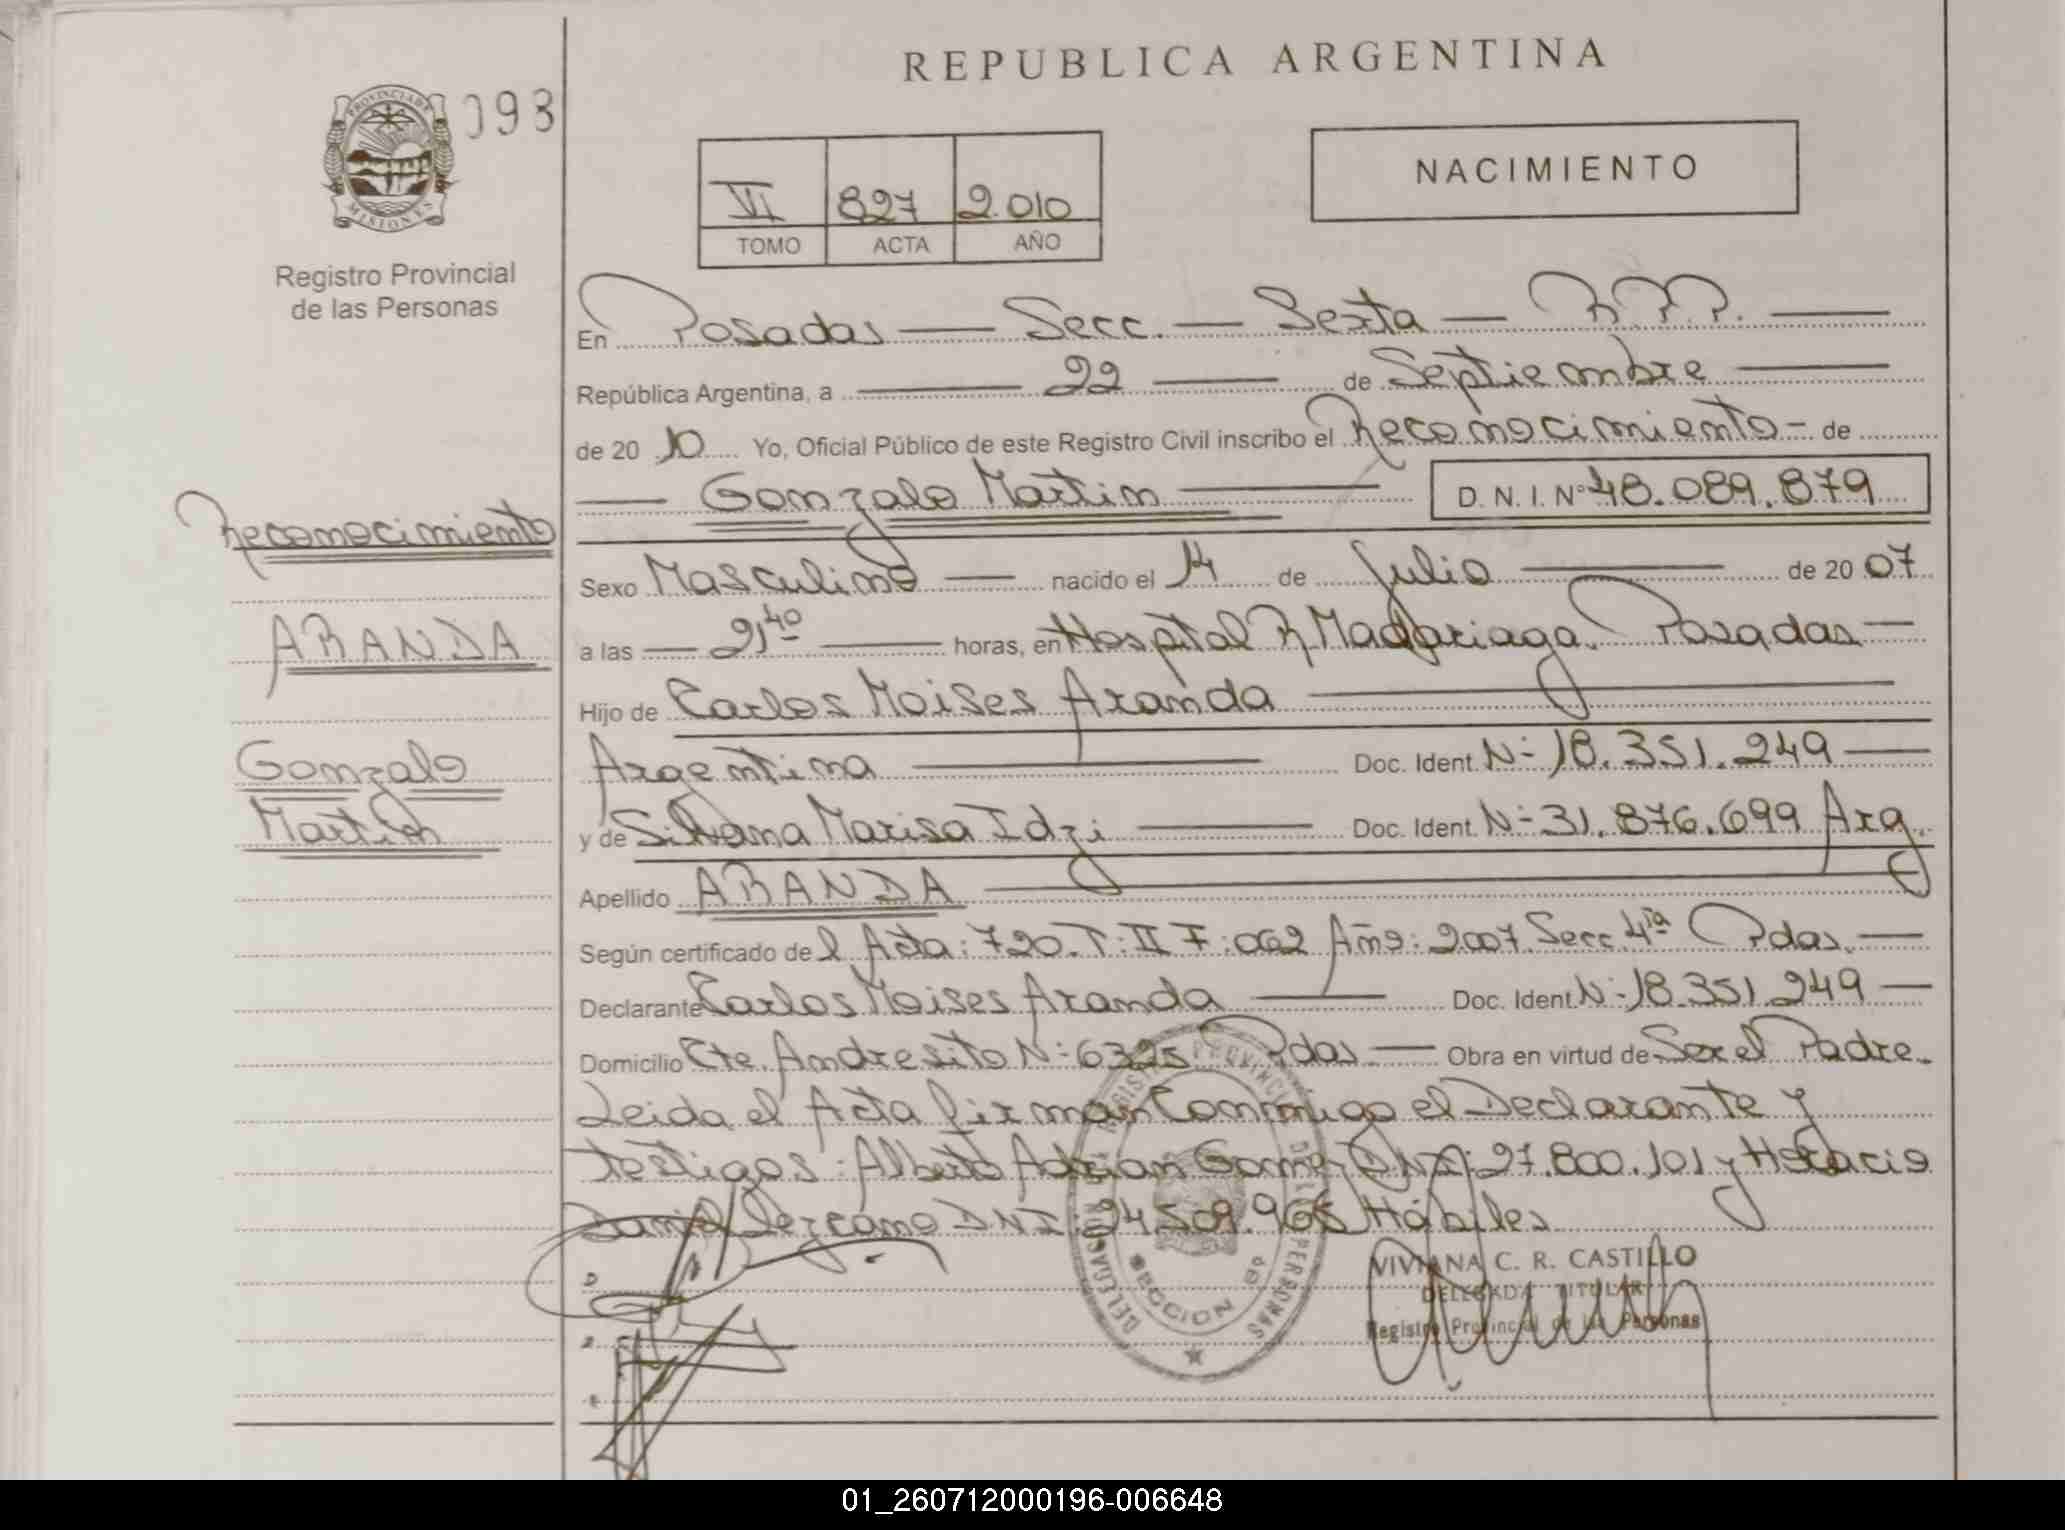 REPUBLICA ARGENTINA
PROVINCIA DE
MISIONES
093
NACIMIENTO
VI 827 2.010
TOMO ACTA AÑO
Registro Provincial
de las Personas
En Posadas — Secc. — Sexta — R.P.P. —
República Argentina, a — 22 — de Septiembre —
de 20 10 Yo, Oficial Público de este Registro Civil inscribo el Reconocimiento - de
— Gonzalo Martin — D. N. I. Nº 48.089.879
Reconocimiento
Sexo Masculino — nacido el 14 de Julio — de 20 07
ARANDA
a las — 21 40 — horas, en Hospital R Madariaga. Posadas —
Hijo de Carlos Moises Aranda —
Gonzalo
Martin
Argentina — Doc. Ident. Nº 18.351.249 —
y de Silvana Marisa Idzi — Doc. Ident. Nº 31.876.699 Arg.
Apellido ARANDA —
Según certificado de l Acta: 720. T: II F: 062 Año: 2.007. Secc 4ta Pdas. —
Declarante Carlos Moises Aranda — Doc. Ident. Nº 18.351.249 —
Domicilio Cte. Andresito Nº 6325 Pdas. — Obra en virtud de Ser el Padre.
Leida el Acta firman Conmigo el Declarante y
testigos: Alberto Adrian Gomez DNI: 27.800.101 y Horacio
Daniel Lezcano DNI: 24.509.965 Hábiles
VIVIANA C. R. CASTILLO
DELEGADA TITULAR
Registro Provincial de las Personas
SECCION 6º
01_260712000196-006648